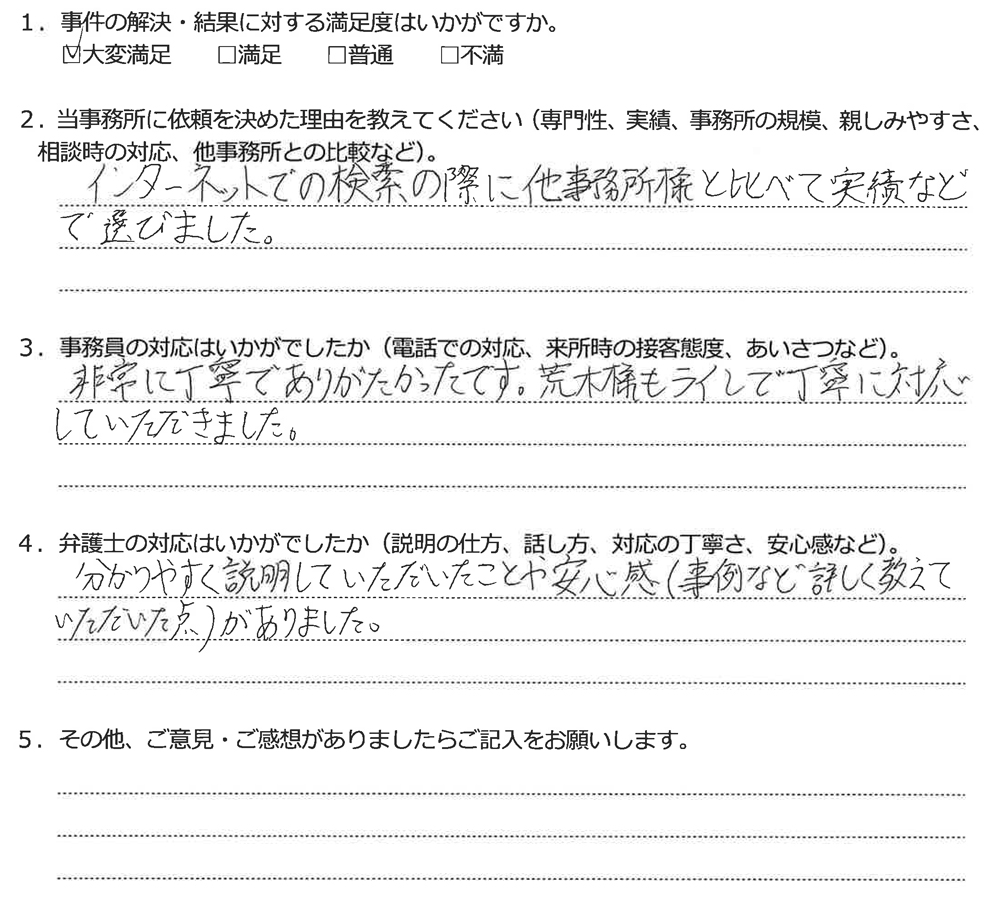 1．事件の解決・結果に対する満足度はいかがですか。
☑大変満足 □満足 □普通 □不満
2．当事務所に依頼を決めた理由を教えてください（専門性、実績、事務所の規模、親しみやすさ、
相談時の対応、他事務所との比較など）。
インターネットでの検索の際に他事務所様と比べて実績など
で選びました。
3．事務員の対応はいかがでしたか（電話での対応、来所時の接客態度、あいさつなど）。
非常に丁寧でありがたかったです。荒木様もライレで丁寧に対応
していただきました。
4．弁護士の対応はいかがでしたか（説明の仕方、話し方、対応の丁寧さ、安心感など）。
分かりやすく説明していただいたことや安心感（事例など詳しく教えて
いただいた点）がありました。
5．その他、ご意見・ご感想がありましたらご記入をお願いします。